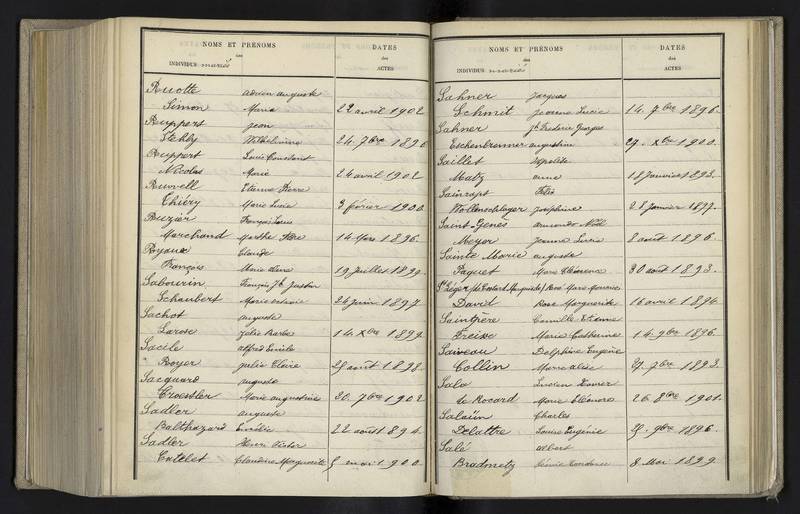 NOMS ET PRÉNOMS
des
INDIVIDUS mariés
DATES
des
ACTES
Ruotte Adrien Auguste
Simon Marie 22 avril 1902
Ruppert Jean
Stehly Wilhelmine 24 7bre 189
Ruppert Louis Constant
Nicolas Marie 24 avril 1902
Ruvvell Etienne Pierre
Thiéry Marie Lucie 3 février 1900
Ruzier François Louis
Marchand Marthe 14 Mars 1896
Ryaux Claude
François Marie 19 juillet 1899
Sabourin François Jh Gaston
Schaubert Marie 26 juin 1897
Sachot Auguste
Larose Julie Barbe 14 Xbre 1899
Sacile Alfred Emile
Boyer Julie Claire 25 août 1898
Sacquard Auguste
Croessler Marie Augustine 20 7bre 1902
Sadler Auguste
Balthazard Emélie 22 août 1894
Sadler Henri Victor
Catelet Claudine Marguerite 5 mai 1900
NOMS ET PRÉNOMS
des
INDIVIDUS mariés
DATES
des
ACTES
Sahner Jacques
Schmit Jeanne Lucie 14 7bre 1896
Sahner Jh Frederic Georges
Eschenbrenner Augustine 29 Xbre 1900
Saillet Hypolite
Matz Anne 18 Janvier 1893
Sainrapt Félix
Wollenschlager Joséphine 28 Janvier 1897
Saint-Genès Armand Noël
Meyer Jeanne Lucie 8 août 1896
Sainte Marie Auguste
Paquet Marie Clémence 30 août 1893
St Léger Rose Marie
David Rose Marguerite 16 avril 1894
Saintpère Camille Etienne
Treise Marie Catherine 14 9bre 1896
Saiveau Delphine Eugène
Collin Marie Alise 27 7bre 1893
Sala Lucien Xavier
de Rocard Marie Eléonore 26 8bre 1901
Salaün Charles
Delattre Louise Eugénie 25 9bre 1896
Salé Albert
Bradmetz 8 Mai 1899